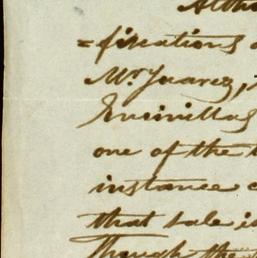 Altho
=fications
Mr. Juarez,
Encinillas
one of the
instance
that sale is
Though the